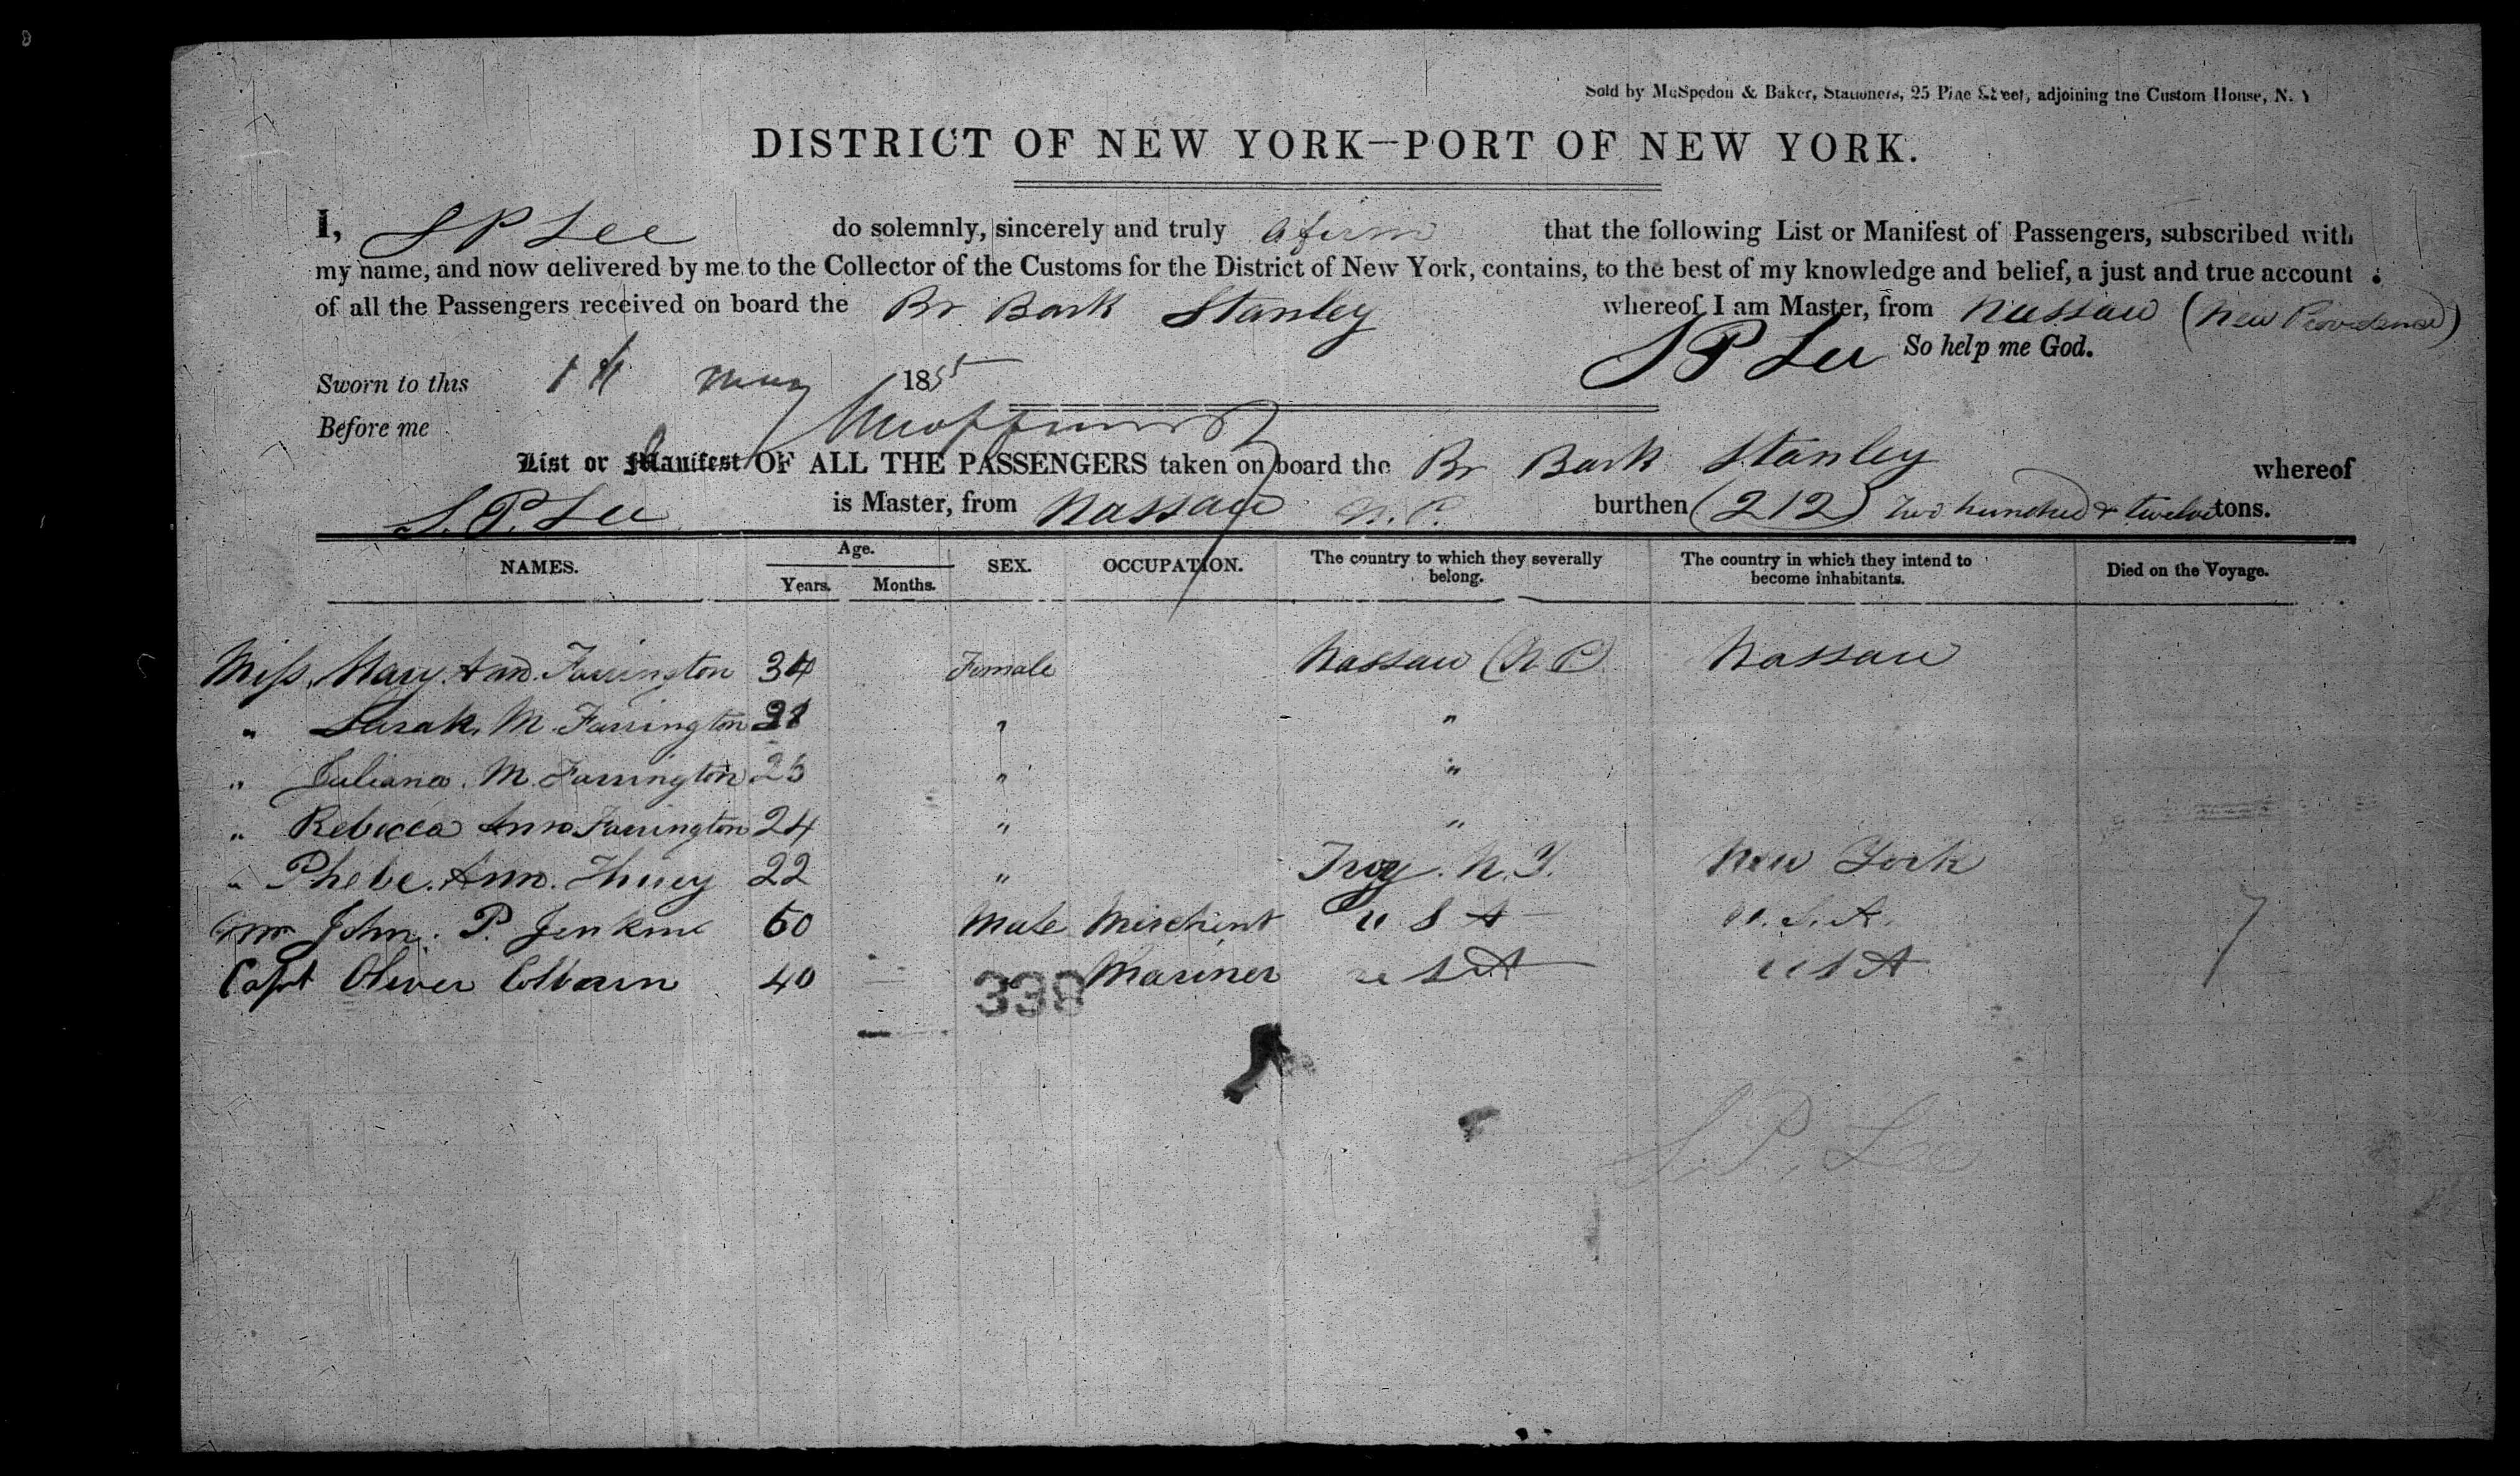 Sold by McSpedon & Baker, Stationers, 25 Pine Street, adjoining the Custom House, N. Y
DISTRICT OF NEW YORK—PORT OF NEW YORK.
I, S P Lee do solemnly, sincerely and truly afirm that the following List or Manifest of Passengers, subscribed with
my name, and now delivered by me to the Collector of the Customs for the District of New York, contains, to the best of my knowledge and belief, a just and true account
of all the Passengers received on board the Br Bark Stanley whereof I am Master, from Nassau (New Providence)
S P Lee So help me God.
Sworn to this May 1855
Before me
List or Manifest OF ALL THE PASSENGERS taken on board the Br Bark Stanley whereof
S. P. Lee is Master, from Nassau N. P. burthen (212) two hundred & twelve tons.
NAMES. Age. Years. Months. SEX. OCCUPATION. The country to which they severally belong. The country in which they intend to become inhabitants. Died on the Voyage.
Miss Mary Ann Farrington 34 Female Nassau (N P) Nassau
" Sarah M Farrington " "
" Juliana M Farrington " "
" Rebecca Ann Farrington 24 " "
" Phebe Ann 22 " Troy. N. Y. New York
Mr John P. Jenkins 50 Male Merchent U S A U. S. A.
Capt Oliver Colburn 40 " Mariner U S A U S A
338
S. P. Lee